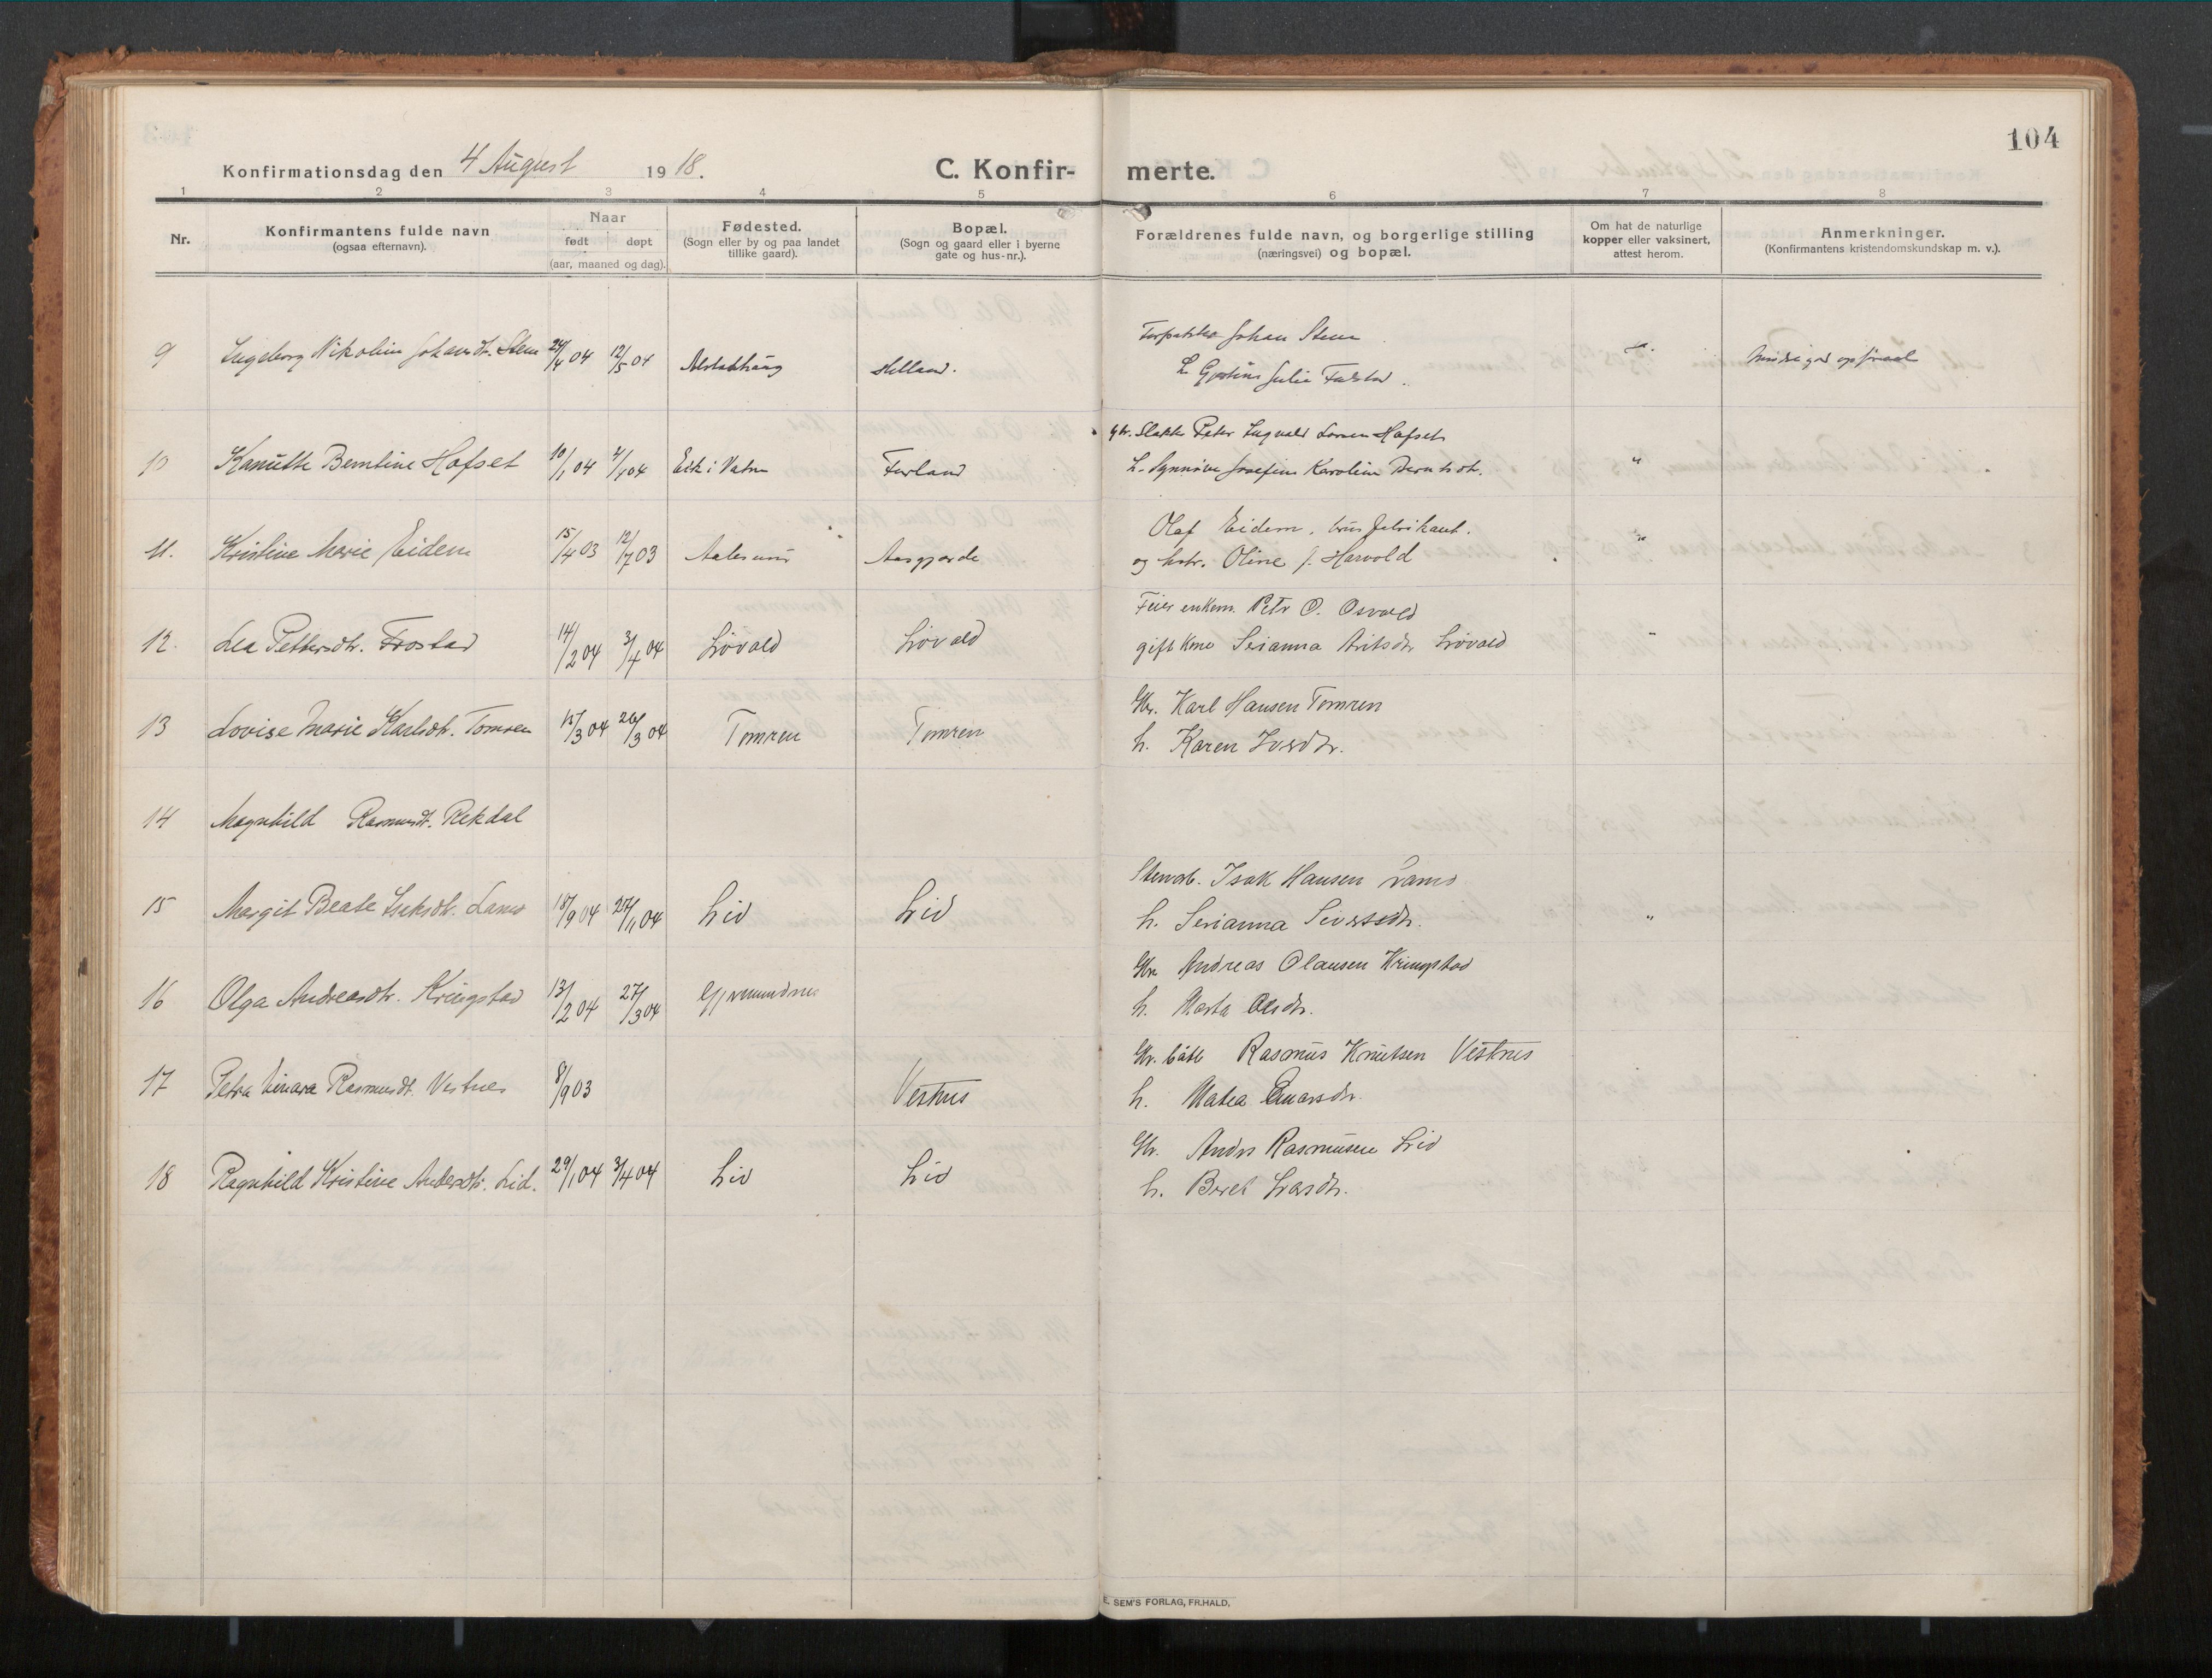 104
Konfirmationsdag den 4 August 1918. C. Konfir- merte.
1 2 3 4 5 6 7 8
Nr.
Konfirmantens fulde navn
(ogsaa efternavn).
Naar
født døpt
(aar, maaned og dag).
Fødested.
(Sogn eller by og paa landet
tillike gaard).
Bopæl.
(Sogn og gaard eller i byerne
gate og hus-nr.).
Forældrenes fulde navn, og borgerlige stilling
(næringsvei) og bopæl.
Om hat de naturlige
kopper eller vaksinert,
attest herom.
Anmerkninger.
(Konfirmantens kristendomskundskap m. v.).
9 Ingeborg Nikoline Johansdt. Stene 24/4 04 12/5 04 Alstahaug Helland. Johan Stene
Julie
10 Kanutte Berntine Hofset 10/1 04 Eik i Vatne Furland Peter Ingvald Larsen Hofset
h. Synnøve Josefine Karoline Berntsdt. "
11. Kristine Marie Eidem 15/4 03 12/7 03 Aalesund Aasgjærde Olaf Eidem, brusfabrikant.
og hstr. Oline f. Harvold "
12. Lea Pettersdtr. Frostad 14/2 04 3/4 04 Løvold Løvold enkem. Petr O. Osvold
gift Kone Serianna Løvold "
13 Lovise Marie Karlsdtr. Tomren 15/3 04 26/3 04 Tomren Tomren Gbr. Karl Hansen Tomren
h. Karen Iversdtr.
14 Magnhild Rasmusdt. Rekdal
15 Margit Beate Isaksdtr. 18/9 04 27/11 04 Lid Lid Isak Hansen
h. Serianna Sivertsdtr. "
16 Olga Andreasdtr. Kringstad 13/2 04 27/3 04 Gjermundnes Gbr Andreas Olausen Kringstad
h. Marta Olsdtr.
17 Petra Rasmusdt. Vestnes 8/9 03 Vestnes Gbr. Rasmus Knutsen Vestnes
h. Matea
18 Ragnhild Kristine Andersdtr. Lid. 29/1 04 3/4 04 Lid Lid Gbr. Andrs Rasmusen Lid
h. Beret Larsdtr.
E. SEM'S FORLAG, FR.HALD.